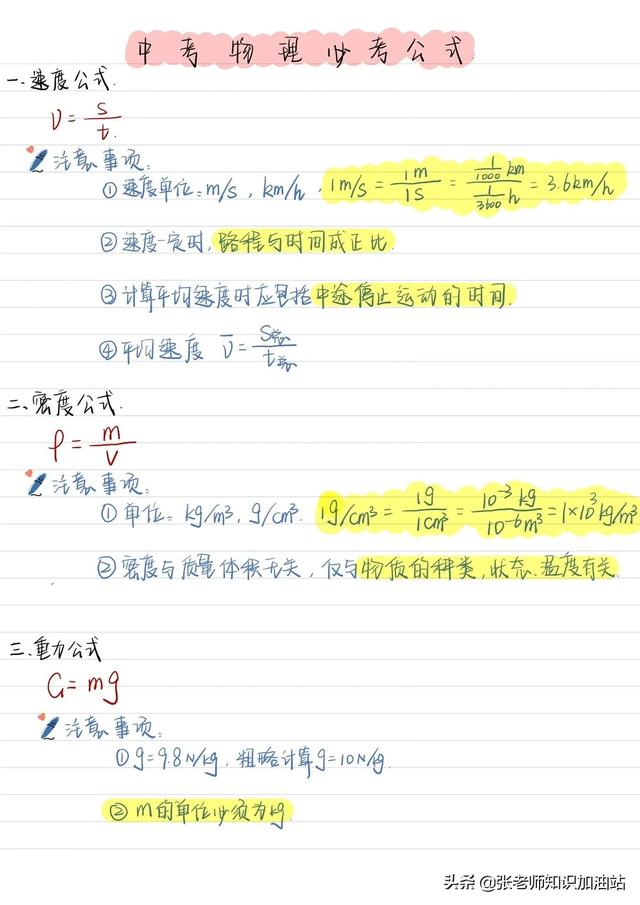 中考物理必考公式
一.速度公式.
V=s/t.
注意事项:
①速度单位:m/s，km/h，1m/s=1m/1s=1/1000km/1/3600h=3.6km/h
②速度一定时,路程与时间成正比.
③计算平均速度时应包括中途停止运动的时间.
④平均速度 v̄=s总/t总
二、密度公式.
ρ=m/V
注意事项:
①单位:kg/m³,g/cm³. 1g/cm³=1g/1cm³=10⁻³kg/10⁻⁶m³=1×10³kg/m³
②密度与质量体积无关，仅与物质的种类,状态、温度有关.
三.重力公式
G=mg
注意事项:
①g=9.8N/kg，粗略计算g=10N/kg.
②m的单位必须为kg.
头条 @张老师知识加油站